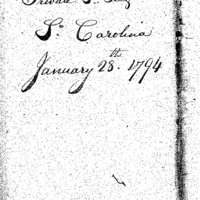 So. Carolina
January 28th. 1794